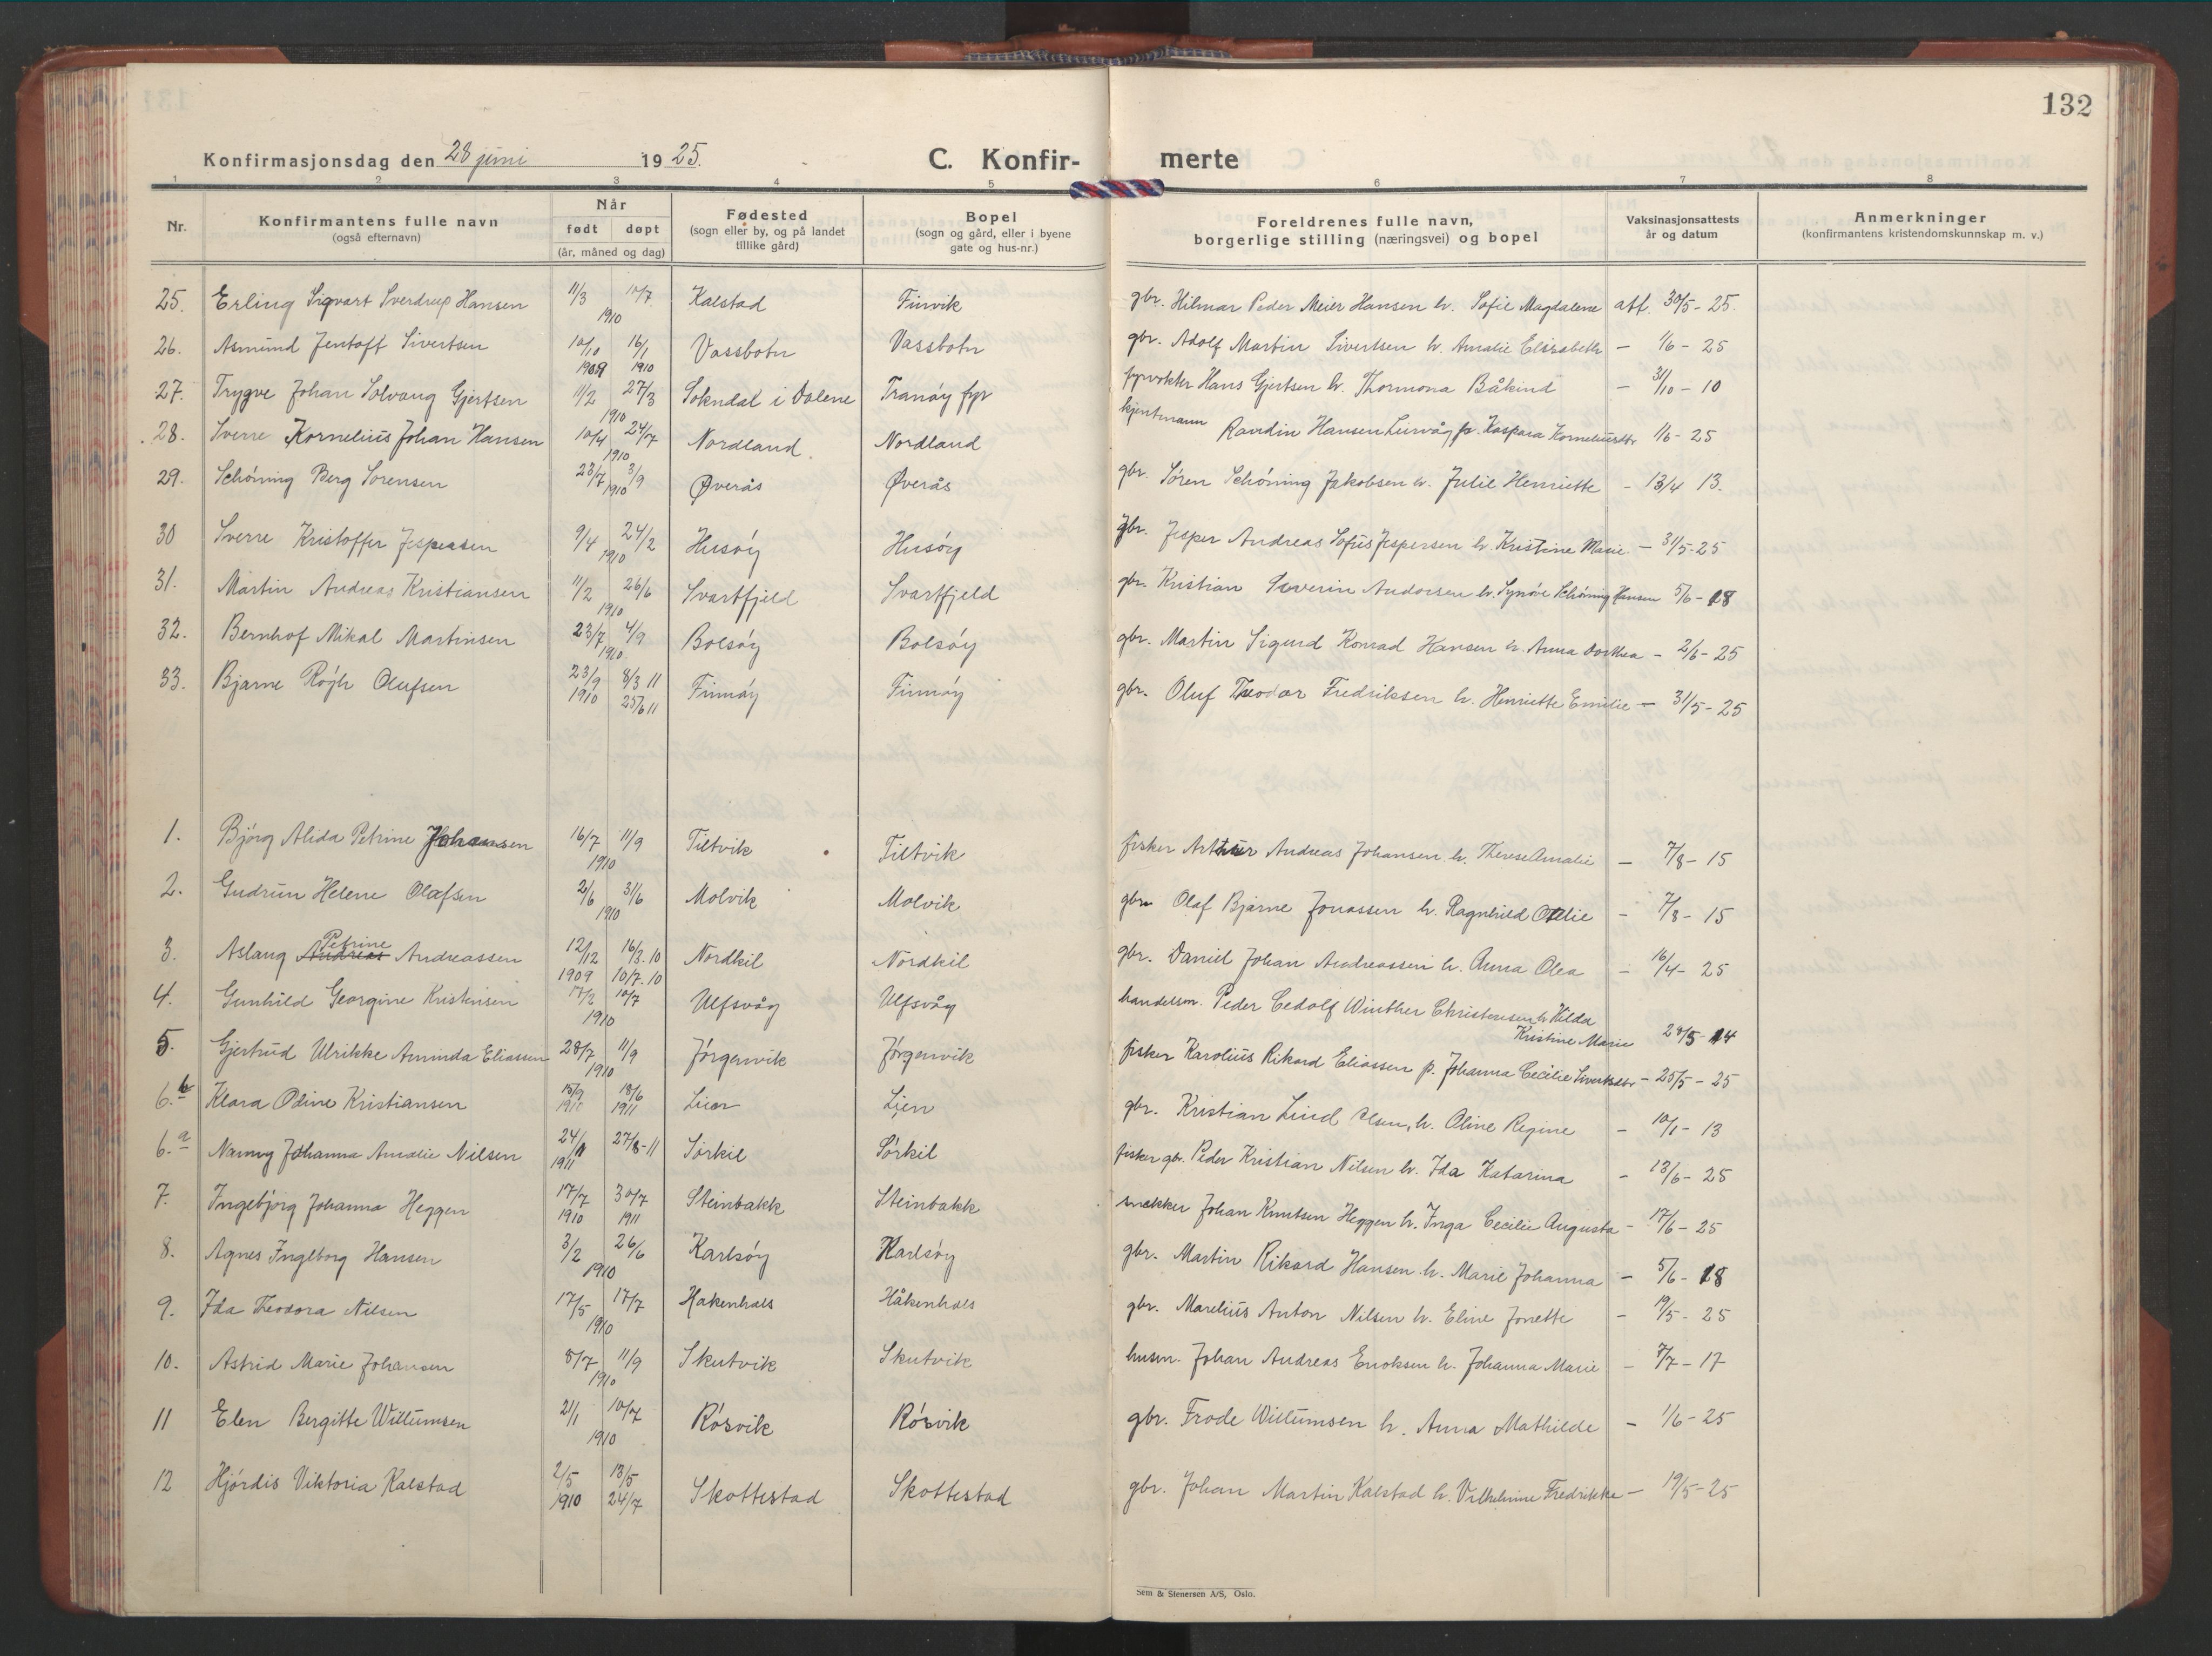 132
Konfirmasjonsdag den 28 juni 1925. C. Konfir- merte
1 2 3 4 5 6 7 8
Nr. Konfirmantens fulle navn (også efternavn) Når født døpt (år, måned og dag) Fødested (sogn eller by, og på landet tillike gård) Bopel (sogn og gård, eller i byene gate og hus-nr.) Foreldrenes fulle navn, borgerlige stilling (næringsvei) og bopel Vaksinasjonsattests år og datum Anmerkninger (konfirmantens kristendomskunnskap m. v.)
25. Erling Sigvart Sverdrup Hansen 11/3 10/7 1910 Kalstad Finvik gbr. Hilmar Peder Meier Hansen h. Sofie Magdalene att. 30/5 - 25.
26. Asmund Jentoft Sivertsen 10/10 1909 16/1 1910 Vassbotn Vassbotn gbr. Adolf Martin Sivertsen h. Amalie Elisabeth - 1/6 - 25
27. Trygve Johan Solvang Gjertsen 11/2 27/3 1910 Sokndal i Dalene Tranøy fyr fyrvokter Hans Gjertsen h. Thormona Båkind - 31/10 - 10
28. Sverre Kornelius Johan Hansen 10/4 24/7 1910 Nordland. Nordland kjentmann Ravdin Hansen Leirvåg p. Kaspara Korneliusdtr 1/6 - 25
29. Schöning Berg Sörensen 23/7 3/9 1910 Øverås Øverås gbr. Sören Schöning Jakobsen h. Julie Henriette - 13/4 13.
30 Sverre Kristoffer Jespersen 9/4 24/2 1910 Husöy Husöy gbr. Jesper Andreas Sofus Jespersen h. Kristine Marie - 31/5 - 25
31. Martin Andreas Kristiansen 11/2 26/6 1910 Svartfjeld Svartfjeld gbr. Kristian Severin Andorsen h. Synöve Schöning Hansen 5/6 - 18
32. Bernhof Mikal Martinsen 23/7 4/9 1910. Bolsöy Bolsöy gbr. Martin Sigurd Konrad Hansen h. Anna Dorthea - 2/6 - 25
33. Bjarne Röjh Olufsen 23/9 1910 8/3 11 25/6 11 Finnöy Finnöy gbr. Oluf Theodor Fredriksen h. Henriette Emilie - 31/5 - 25
1. Björg Alida Petrine Johansen 16/7 11/9 1910 Tiltvik Tiltvik fisker Arthur Andreas Johansen h. Therese Amalie - 7/8 - 15
2. Gudrun Helene Olafsen 2/6 31/6 1910 Molvik Molvik gbr Olaf Bjarne Jonassen h. Ragnhild Otelie - 7/8 - 15
3. Aslaug Andreas Petrine Andreassen 12/12 1909 16/3. 10 10/7. 10 Nordkil Nordkil gbr. Daniel Johan Andreassen h. Anna Olea - 16/4 - 25
4. Gunhild Georgine Kristensen 17/2 10/7 1910 Ulfsvåg Ulfsvåg handelsm. Peder Cedolf Winther Christensen h. Hilda
Kristine Marie 28/5 - 14
5. Gjertrud Ulrikke Aminda Eliassen 28/7 11/9 1910 Jörgenvik Jörgenvik fisker Karolius Rikard Eliassen p. Johanna Cecilie Sivertsdtr - 25/5 - 25
6.b Klara Odine Kristiansen 15/9 1910 18/6 1911 Lien Lien gbr. Kristian Lind Olsen, h. Oline Regine - 10/1 - 13
6.a Nanny Johanna Amalie Nilsen 24/1 1911 27/8 - 11 Sörkil Sörkil fisker gbr. Peder Kristian Nilsen h. Ida Katarina - 13/6 - 25
7. Ingebjörg Johanna Heggen 17/7 1910 30/7 1911 Steinbakk Steinbakk snekker Johan Knutsen Heggen h. Inga Cecilie Augusta - 17/6 - 25
8. Agnes Ingeborg Hansen 3/2 26/6 1910 Karlsöy Karlsöy gbr. Martin Rikard Hansen h. Marie Johanna - 5/6 - 18
9. Ida Theodora Nilsen 17/5 17/7 1910 Hakenhals Håkenhals gbr. Marelius Anton Nilsen h. Eline Jonette - 19/5 - 25
10. Astrid Marie Johansen 8/7 11/9 1910 Skutvik Skutvik husm. Johan Andreas Enoksen h. Johanna Marie - 7/7 - 17
11 Elen Bergitte Willumsen 2/1 10/7 1910 Rösvik Rösvik gbr. Frode Willumsen h. Anna Mathilde - 1/6 - 25
12 Hjördis Viktoria Kalstad 2/5 1910 13/5 24/7 Skottestad Skottestad gbr. Johan Martin Kalstad h. Vilhelmine Fredrikke - 19/5 - 25
Sem & Stenersen A/S, Oslo.